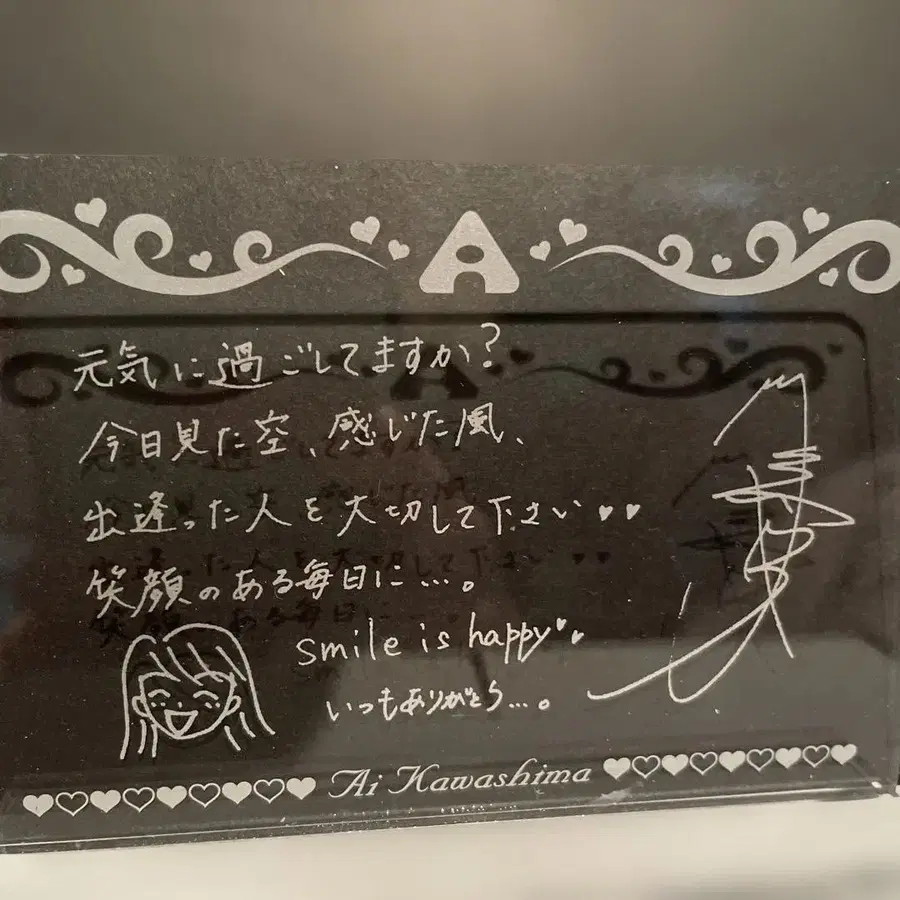 A
元気に過ごしてますか?
今日見た空、感じた風、
出逢った人を大切して下さい♥♥
笑顔のある毎日に…。
smile is happy♥♥
いつもありがとう…。
Ai Kawashima